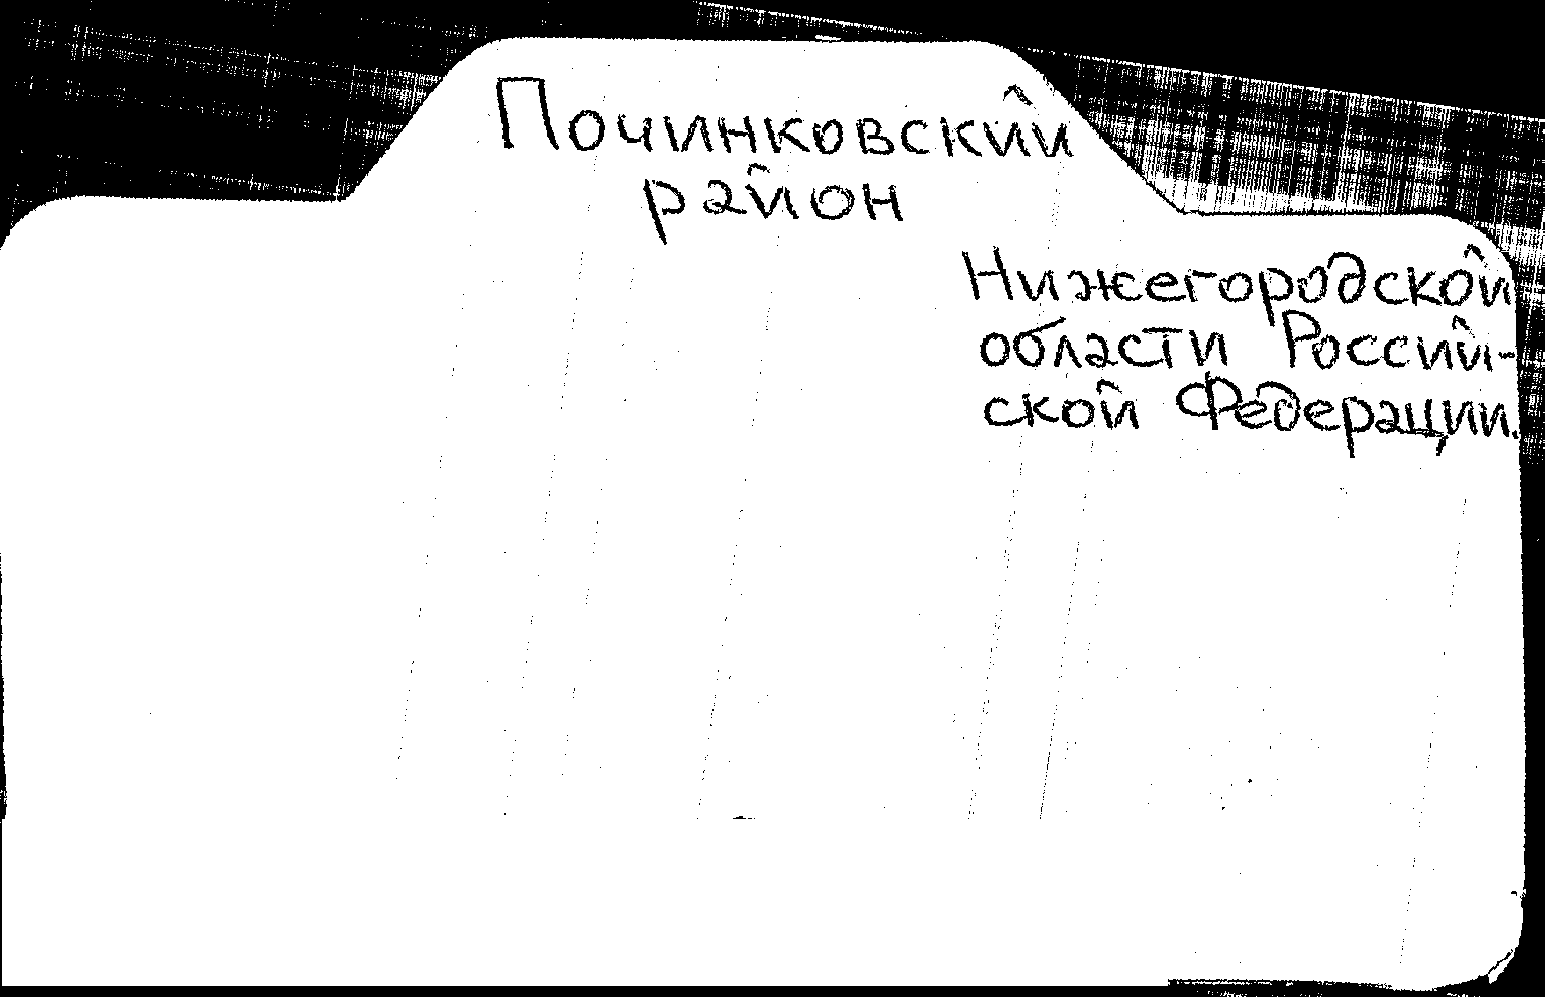 Починковский
район
Нижегородской
области Россий-
ской Федерации.